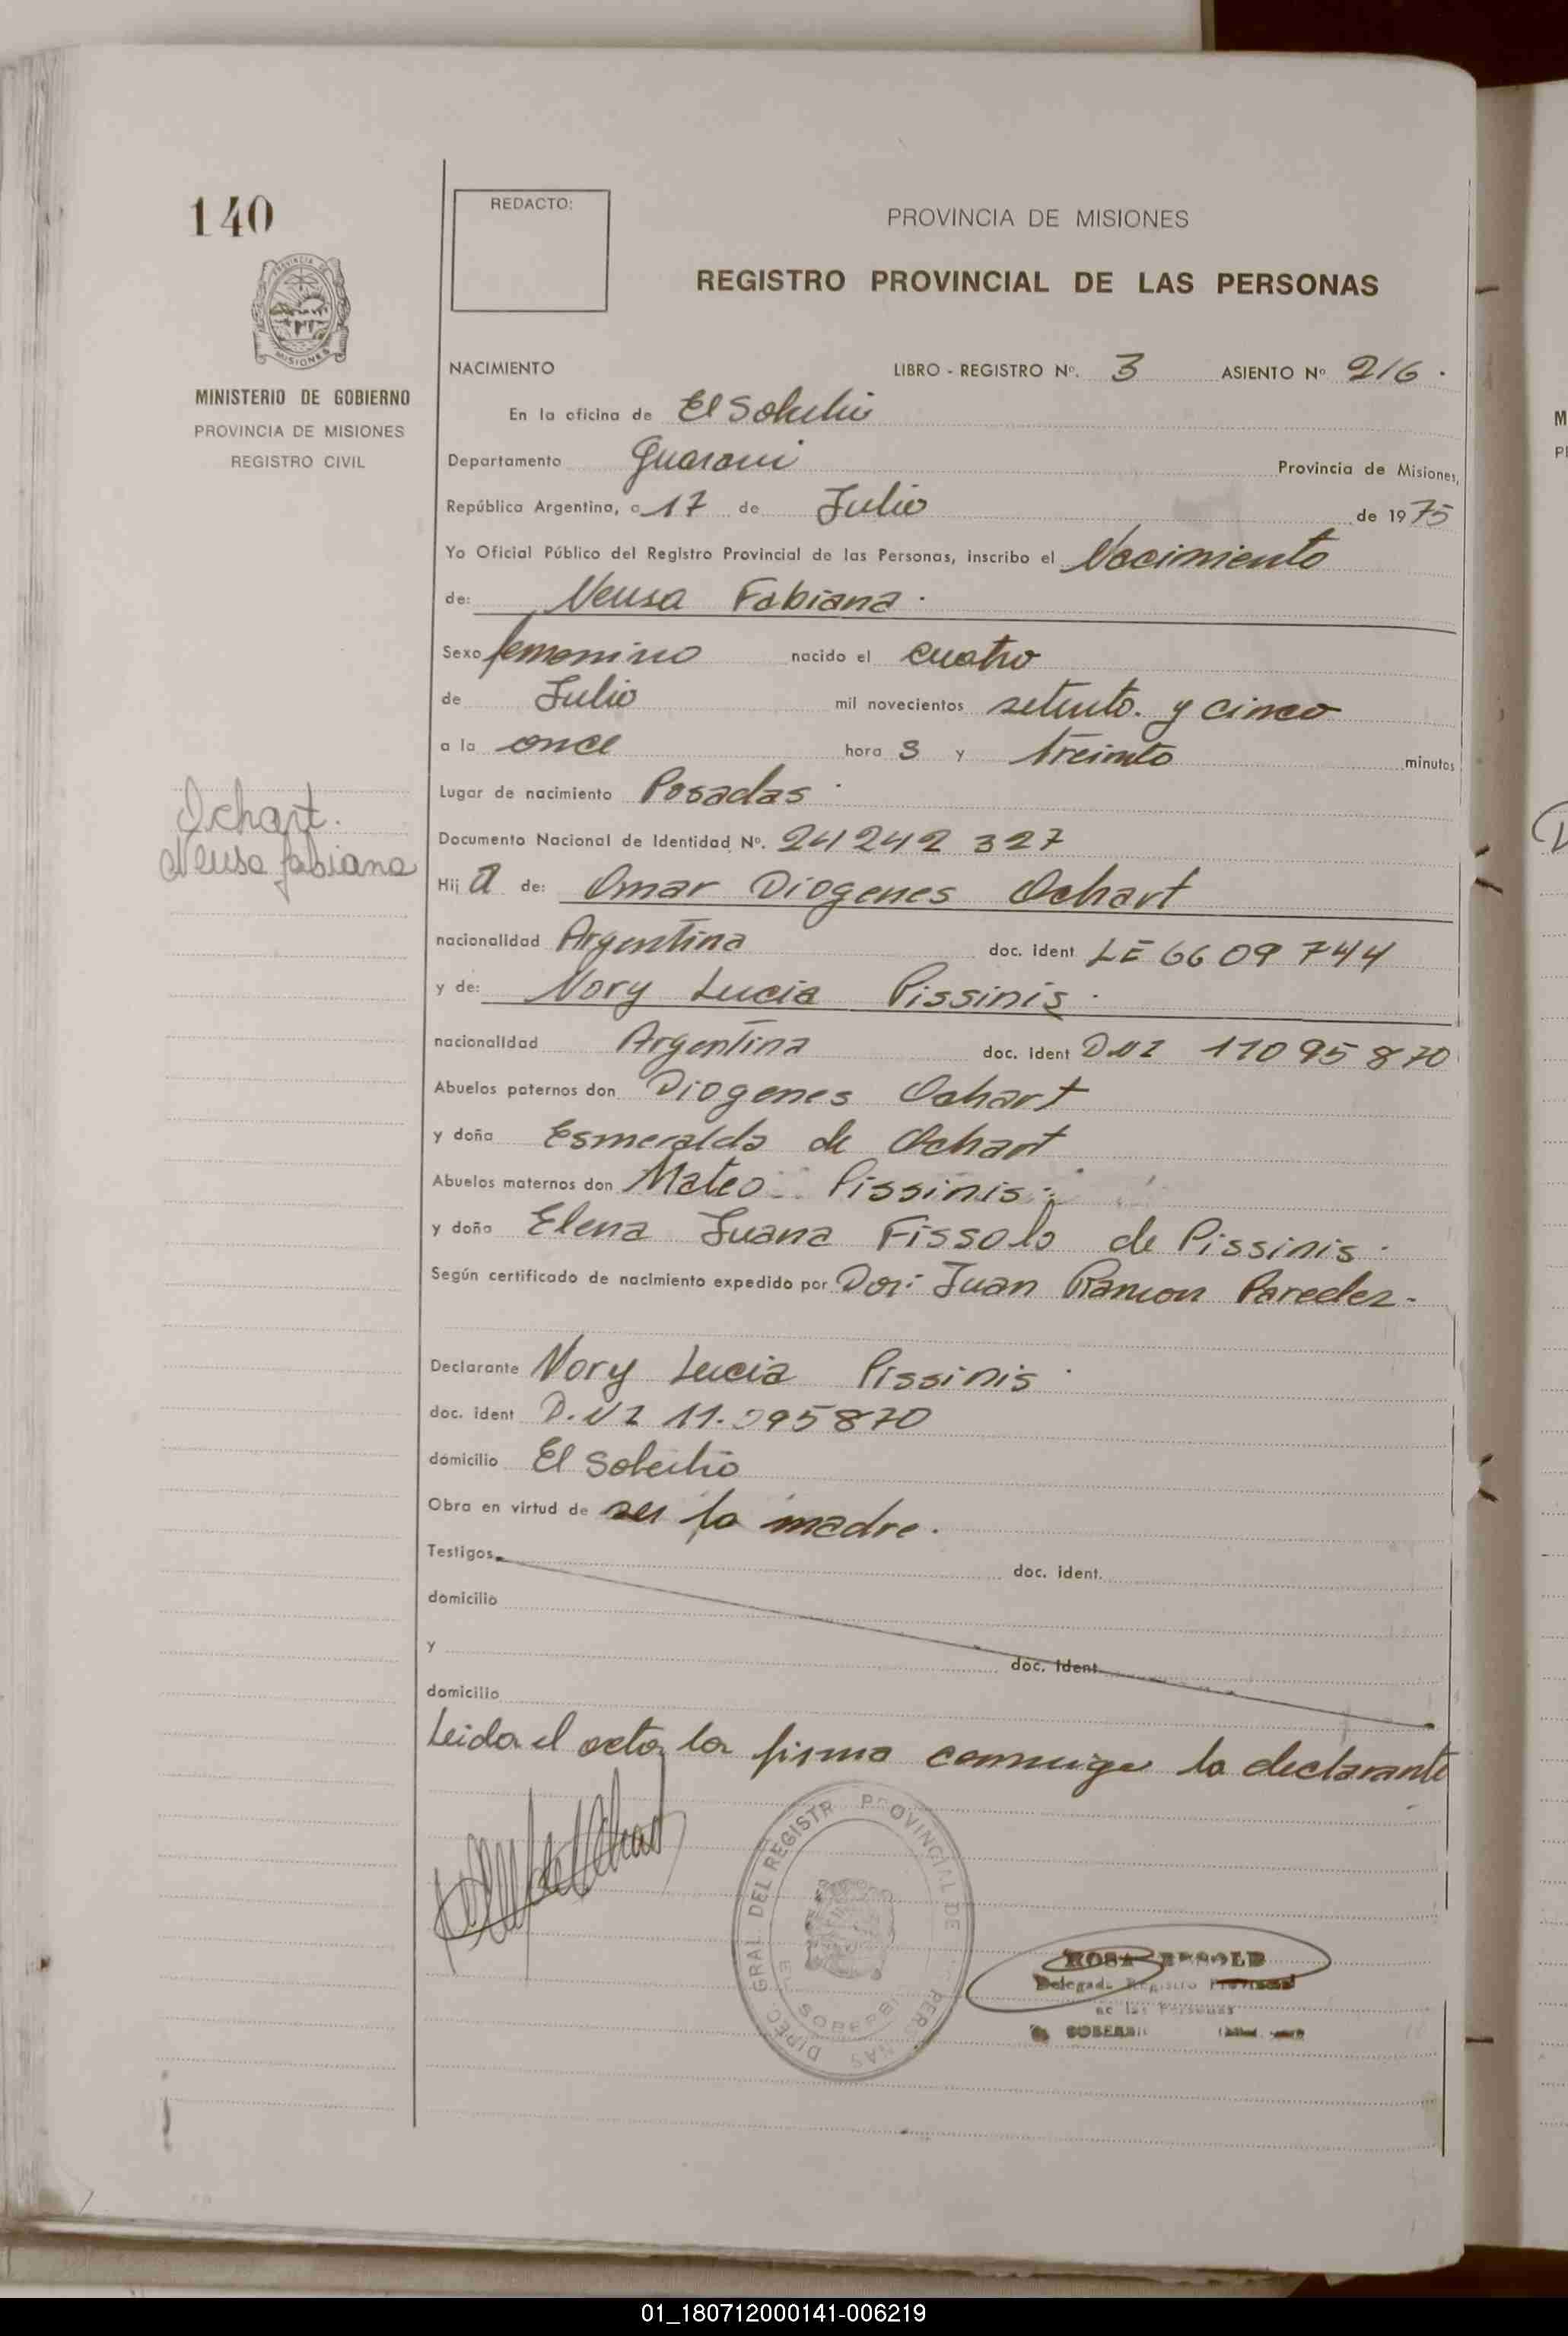 140
REDACTO:
PROVINCIA DE MISIONES
REGISTRO PROVINCIAL DE LAS PERSONAS
MINISTERIO DE GOBIERNO
PROVINCIA DE MISIONES
REGISTRO CIVIL
NACIMIENTO LIBRO - REGISTRO Nº. 3 ASIENTO Nº 216.
En la oficina de El Soberbio
Departamento Guarani Provincia de Misiones,
República Argentina, a 17 de Julio de 1975
Yo Oficial Público del Registro Provincial de las Personas, inscribo el Nacimiento
de: Neusa Fabiana.
Sexo femenino nacido el cuatro
de Julio mil novecientos setenta. y cinco
a la once hora s y treinta minutos
Lugar de nacimiento Posadas
Documento Nacional de Identidad Nº. 24 242 327
Ochart.
Neusa fabiana
Hij a de: Omar Diogenes Ochart
nacionalidad Argentina doc. ident LE 66 09 744
y de: Nory Lucia Pissinis.
nacionalidad Argentina doc. ident DNI 11095870
Abuelos paternos don Diogenes Ochart
y doña Esmeralda de Ochart
Abuelos maternos don Mateo Pissinis
y doña Elena Juana Fissolo de Pissinis.
Según certificado de nacimiento expedido por Dor: Juan Ramon Paredez-
Declarante Nory Lucia Pissinis
doc. ident D.N I 11.095870
domicilio El Soberbio
Obra en virtud de ser la madre.
Testigos doc. ident.
domicilio
y doc. ident.
domicilio
Leida el acta la firma conmigo la declarante
DIREC. GRAL. DEL REGISTR PROVINCIAL DE PERS NAS
EL SOBERBI
ROSA
Delegada Registro Provincial
de las Personas
SOBERBI
01_180712000141-006219